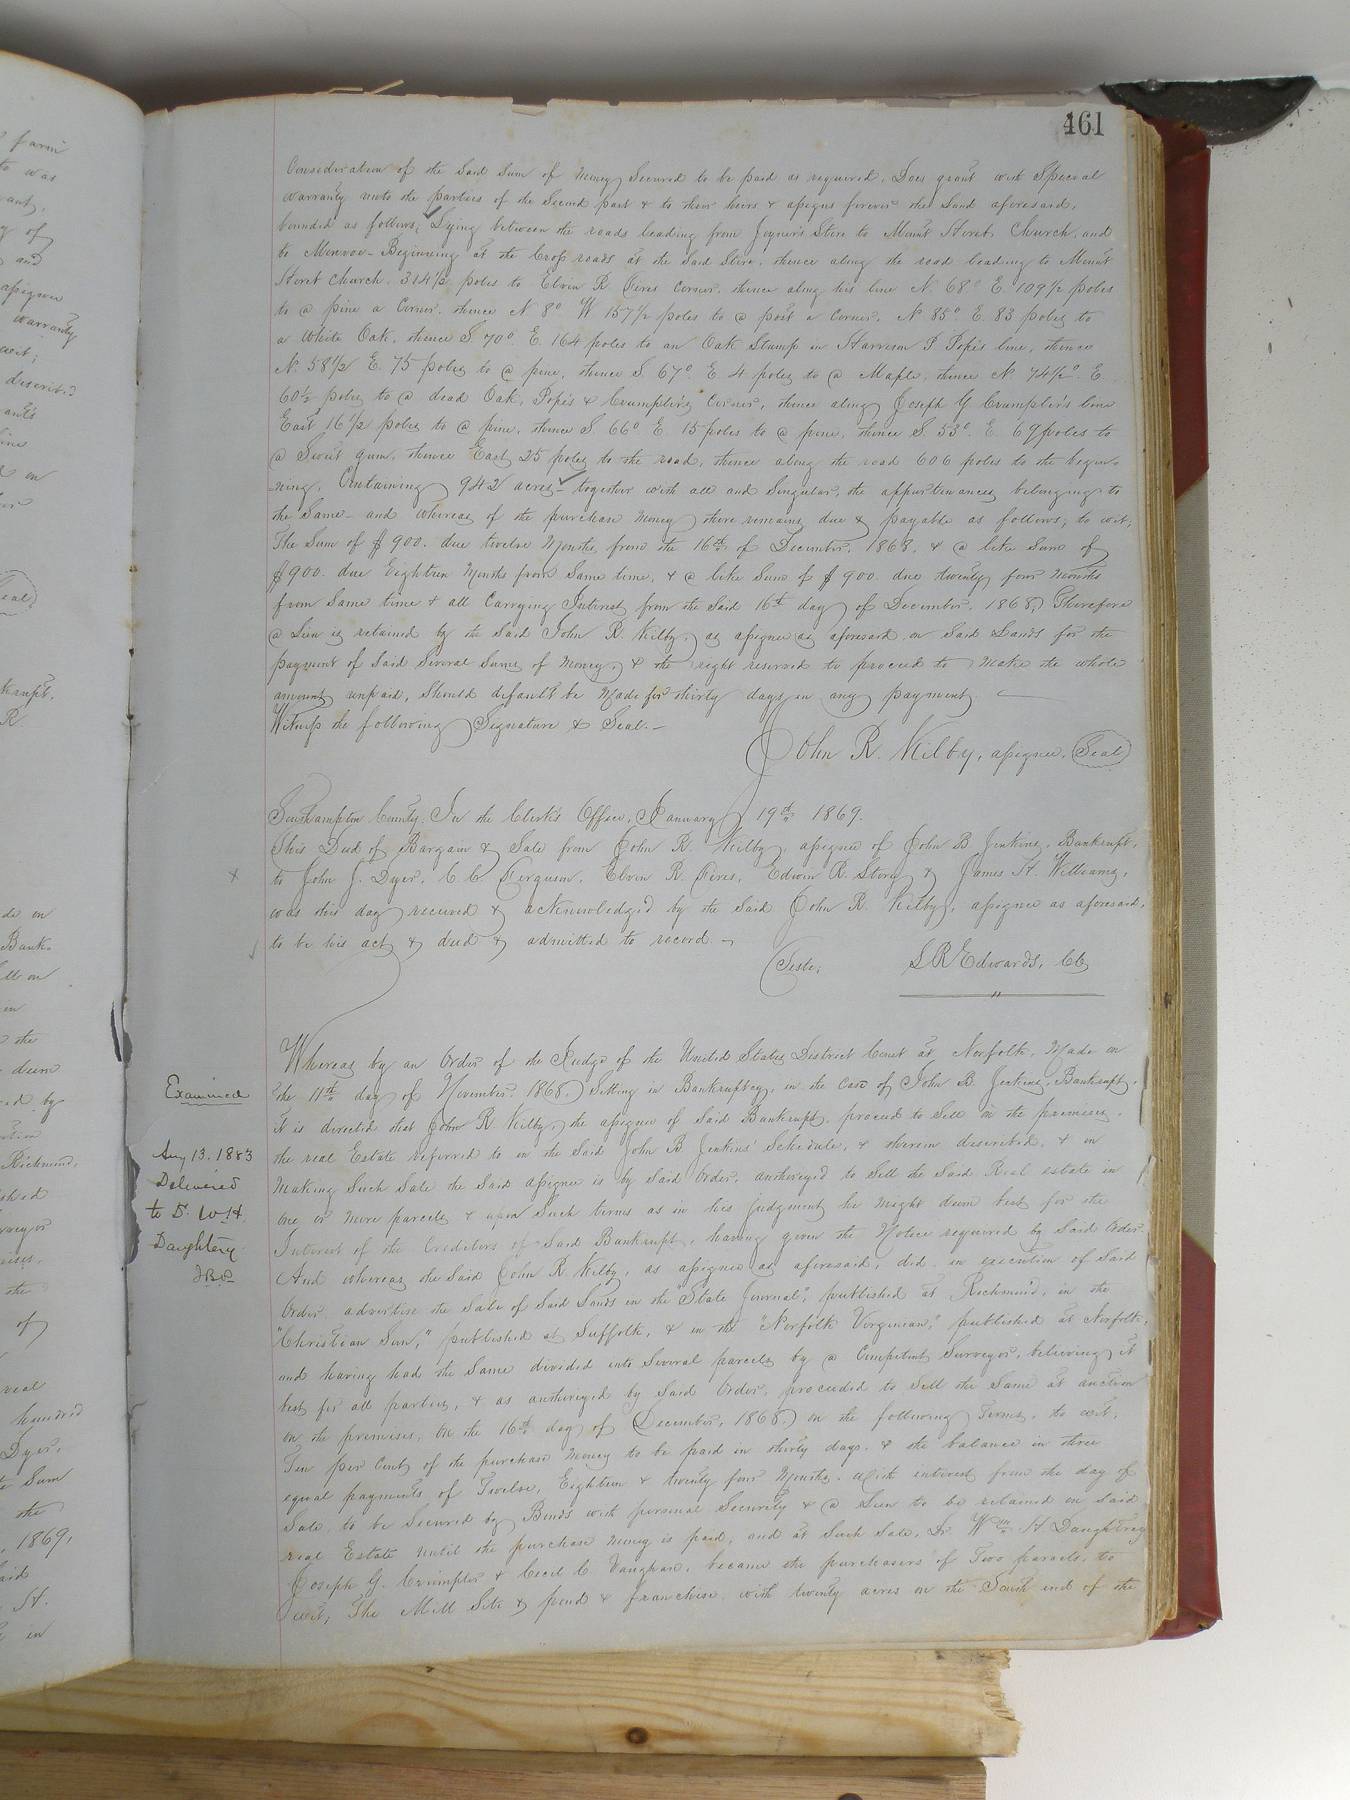 461
Consideration of the said sum of money secured to be paid as required, Does grant with Special
warranty unto the parties of the Second part & to their heirs & assigns forever the Land aforesaid,
bounded as follows; Lying between the roads leading from Joyner's Store to Mount Horet Church, and
to Monroe - Beginning at the Cross roads at the Said Store, thence along the road leading to Mount
Horet Church, 314½ poles to Elvin R. corner, thence along his line N. 68° E. 109½ poles
to a pine a Corner, thence N 8° W 157½ poles to a post a Corner, N 85° E. 83 poles to
a White Oak, thence S. 70° E. 164 poles to an Oak Stump in Harrison P Pope's line, thence
N. 58½ E. 75 poles to a pine, thence S 67° E 4 poles to a Maple, thence N. 74½° E.
60½ poles to a dead Oak, Pope's & Crumpler's Corner, thence along Joseph G Crumpler's line
East 16½ poles to a pine, thence S. 66° E. 15 poles to a pine, thence S. 53° E. 69 poles to
a Sweet gum, thence East 25 poles to the road, thence along the road 606 poles to the begin-
-ning, Containing 942 acres - together with all and Singular, the appurtenances belonging to
the Same - and whereas of the purchase money there remains due & payable as follows, to wit;
The Sum of $900. due twelve Months from the 16th of December, 1868, & a like Sum of
$900. due Eighteen Months from Same time, & a like Sum of $900. due twenty four Months
from Same time & all Carrying Interest from the Said 16th day of December, 1868, Therefore
a Lien is retained by the Said John R. Kilby, as assignee as aforesaid on Said Lands for the
payment of Said Several Sums of Money, & the right reserved to proceed to Make the whole
amount unpaid, Should default be Made for thirty days in any payment
Witness the following Signature & Seal. -
John R. Kilby, assignee, (Seal)
Southampton County, In the Clerk's Office, January 19th 1869.
This Deed of Bargain & Sale from John R. Kilby, assignee of John B Jenkins, Bankrupt,
to John J. Dyer, C C Ferguson, Elvin R. Edwin R. Story & James H. Williams,
was this day received & acknowledged by the Said John R. Kilby, assignee as aforesaid,
to be his act & deed & admitted to record. -
Teste, L R Edwards, CC
Whereas by an Order of the Judge of the United States District Court at Norfolk, Made on
the 11th day of November, 1868, Sitting in Bankruptcy, in the Case of John B. Jenkins, Bankrupt,
it is directed that John R Kilby, the assignee of Said Bankrupt, proceed to Sell on the premises,
the real Estate referred to in the Said John B Jenkins' Schedule, & therein described, & in
Making Such Sale the Said assignee is by Said Order, authorized to Sell the Said Real estate in
one or more parcels & upon Such terms as in his judgment he might deem best for the
Interest of the Creditors of Said Bankrupt, having given the Notice required by Said Order
And whereas the Said John R. Kilby, as assignee as aforesaid, did in execution of Said
Order, advertise the Sale of Said Lands in the "State Journal", published at Richmond, in the
"Christian Sun," published at Suffolk, & in the "Norfolk Virginian," published at Norfolk,
and having had the Same divided into Several parcels by a Competent Surveyor, believing it
best for all parties, & as authorized by Said Order, proceeded to Sell the Same at auction
on the premises, on the 16th day of December, 1868, on the following Terms, to wit;
Ten per Cent of the purchase Money to be paid in thirty days, & the balance in three
equal payments of Twelve, Eighteen & twenty four Months, with interest from the day of
Sale, to be Secured by Bonds with personal Security & a Lien to be retained on Said
real Estate until the purchase money is paid, and at Such Sale, Dr. Wm H Daughtrey
Joseph G. Crumpler & Cecil C Vaughan, became the purchasers of Two parcels, to
wit; The Mill Site & pond & franchise, with twenty acres on the South end of the
Examined
Aug 13. 1883
Delivered
to Dr W H
Daughtrey